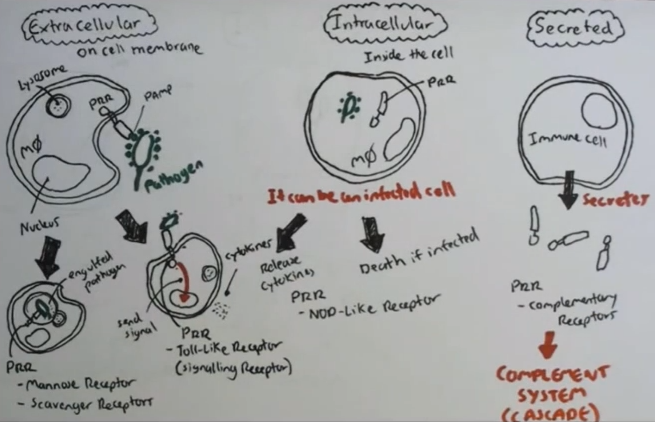 Extracellular
on cell membrane
Lysosome
PRR
PAMP
MØ
Pathogen
Nucleus
engulfed
pathogen
PRR
- Mannose Receptor
- Scavenger Receptors
send
signal
cytokines
PRR
- Toll-Like Receptor
(signalling Receptor)
Intracellular
Inside the cell
PRR
MØ
It can be an infected cell
Release
cytokines
Death if infected
PRR
- NOD-Like Receptor
Secreted
Immune cell
Secretes
PRR
- Complementary
Receptors
COMPLEMENT
SYSTEM
(CASCADE)